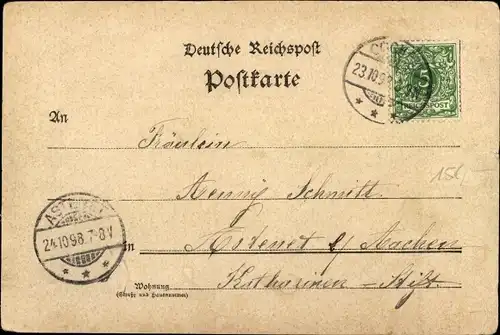 Deutsche Reichspost
Postkarte
23.10.98
5
REICHSPOST
An
Fräulein
Henny Schmitt
in Astenet b/ Aachen
Katharinen-Stift
ASTENET
24.10.98.7-8V
Wohnung
(Straße und Hausnummer)